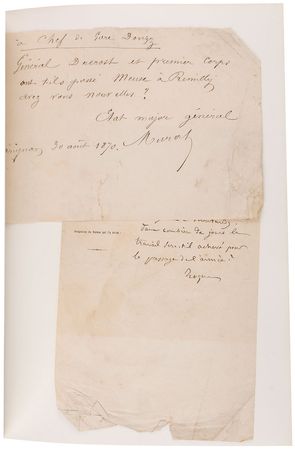 à Chef de Gare Douzy
Général Ducrost et premier Corps
ont-ils passé Meuse à Remilly
avez vous nouvelles ?
Etat major général
30 août 1870. Murat
dans combien de jours le
travail sera-t-il achevé pour
le passage de l'armée ?